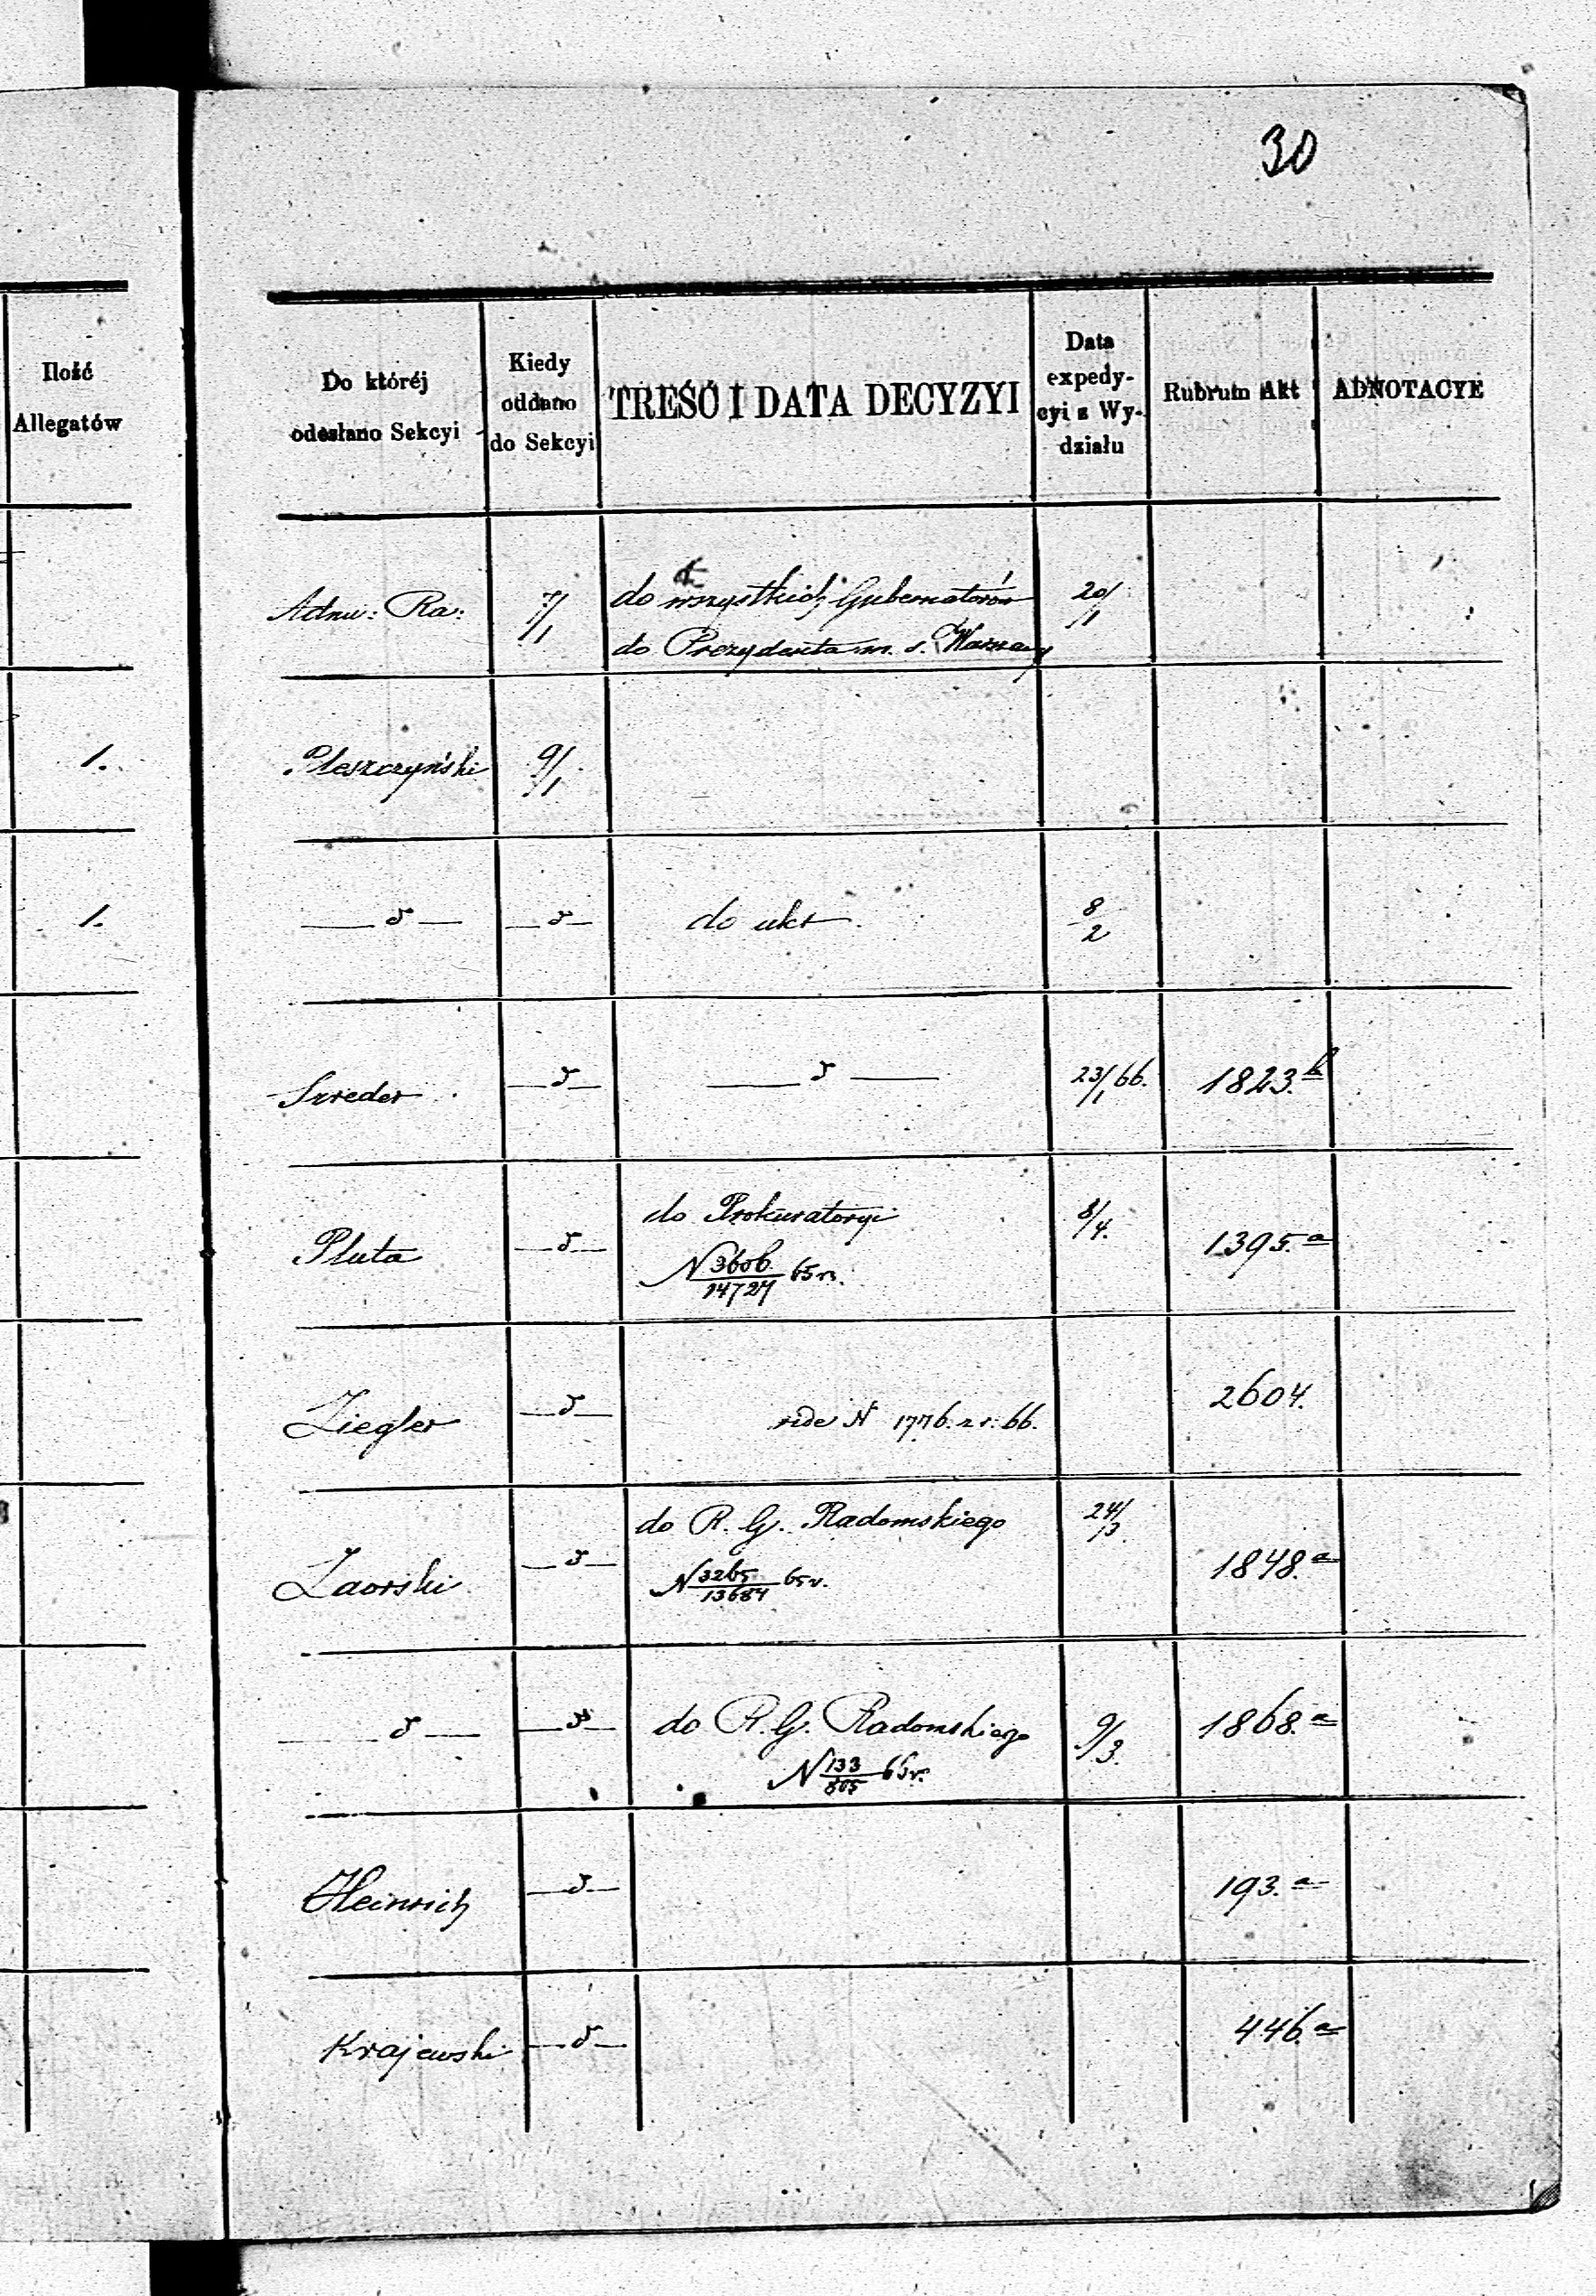 30
Ilość
Allegatów
Do któréj
odesłano Sekcyi
Kiedy
oddano
do Sekcyi
TREŚĆ I DATA DECYZYI
Data
expedy-
cyi z Wy-
działu
Rubrum Akt
ADNOTACYE
Adm: Ra: 7/1 do wszystkich Gubernatorów 20/1
do Prezydenta m. s. Warszawy
1. Pleszczyński 9/1
1. — d — — d — do akt 8/2
Szreder — d — — d — 23/1 66. 1823. b
Pluta — d — do Prokuratoryi 8/4. 1395. a
N 3606/14727 65 r.
Ziegler — d — vide N 1776. z r. 66. 2604.
Zaorski — d — do R. G. Radomskiego 24/3 1848. a
N 3265/13684 65 r.
— d — — d — do R. G. Radomskiego 9/3. 1868. a
N 133/805 66 r.
Heinrich — d — 193. a
Krajewski — d — 446. a